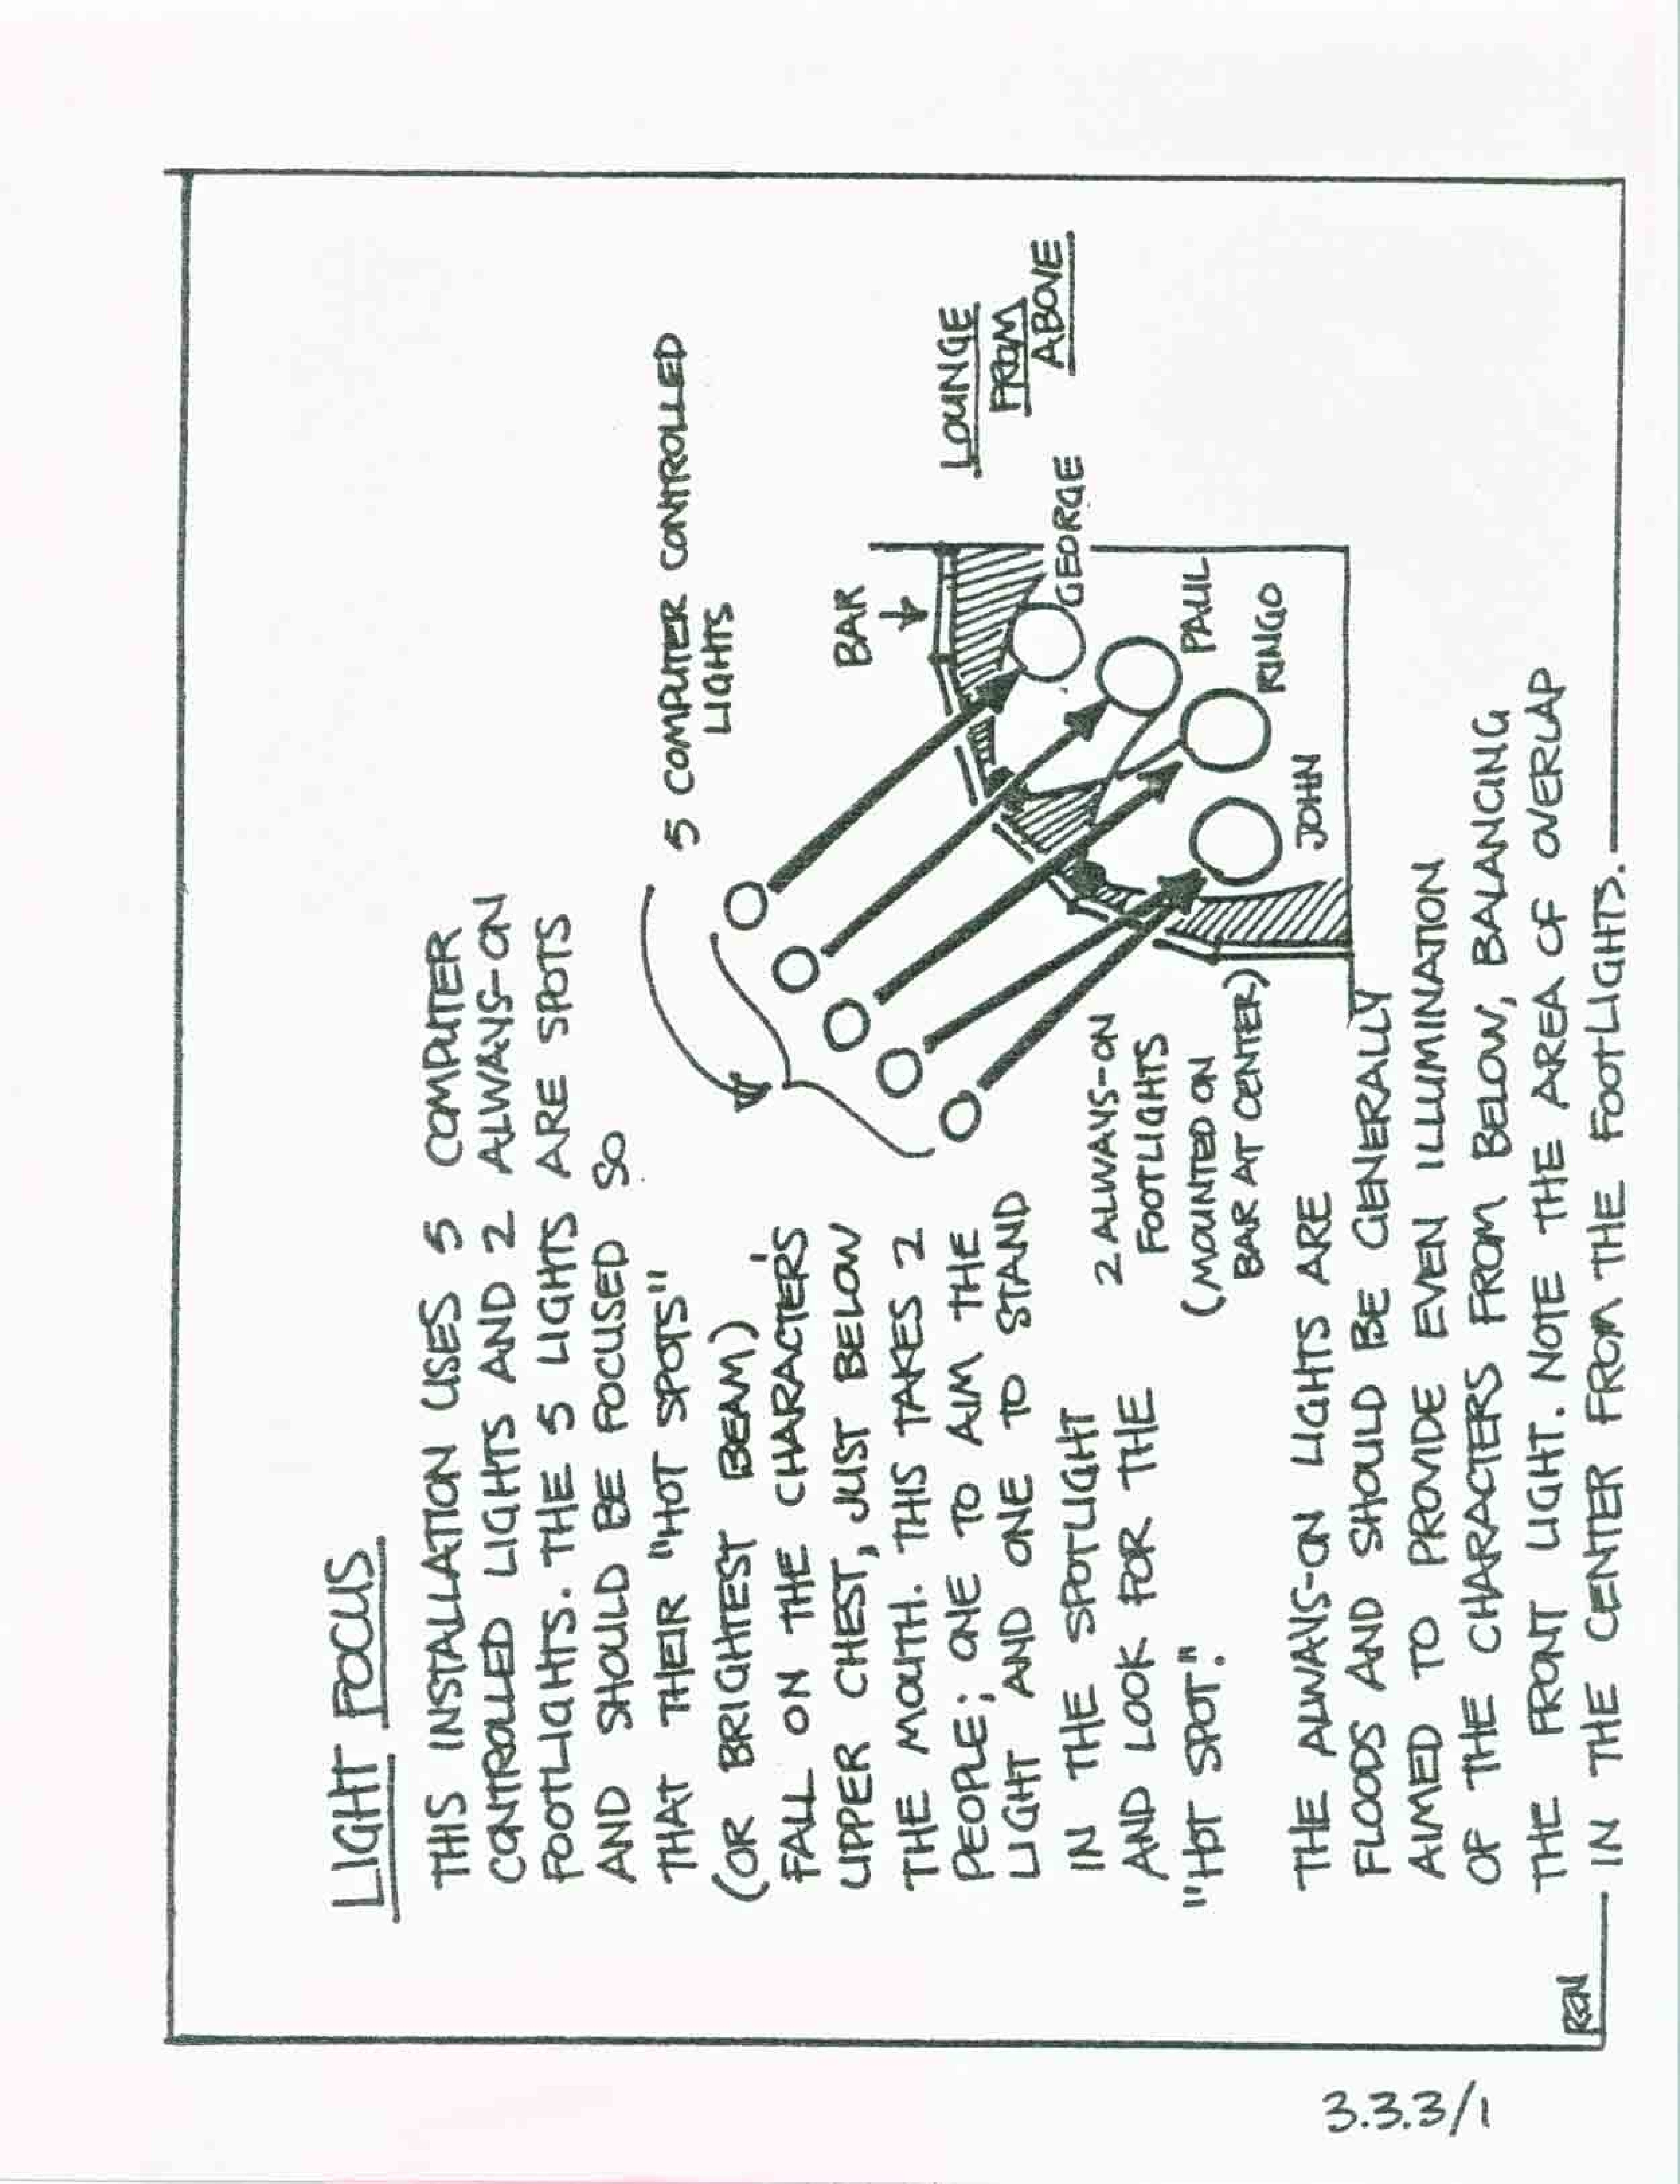 LIGHT FOCUS
THIS INSTALLATION USES 5 COMPUTER
CONTROLLED LIGHTS AND 2 ALWAYS-ON
FOOTLIGHTS. THE 5 LIGHTS ARE SPOTS
AND SHOULD BE FOCUSED SO
THAT THEIR "HOT SPOTS"
(OR BRIGHTEST BEAM)
FALL ON THE CHARACTER'S
UPPER CHEST, JUST BELOW
THE MOUTH. THIS TAKES 2
PEOPLE; ONE TO AIM THE
LIGHT AND ONE TO STAND
IN THE SPOTLIGHT
AND LOOK FOR THE
"HOT SPOT".
5 COMPUTER CONTROLLED
LIGHTS
BAR
LOUNGE
FROM
ABOVE
GEORGE
PAUL
RINGO
JOHN
2 ALWAYS-ON
FOOTLIGHTS
(MOUNTED ON
BAR AT CENTER)
THE ALWAYS-ON LIGHTS ARE
FLOODS AND SHOULD BE GENERALLY
AIMED TO PROVIDE EVEN ILLUMINATION
OF THE CHARACTERS FROM BELOW, BALANCING
THE FRONT LIGHT. NOTE THE AREA OF OVERLAP
IN THE CENTER FROM THE FOOTLIGHTS.
3.3.3/1